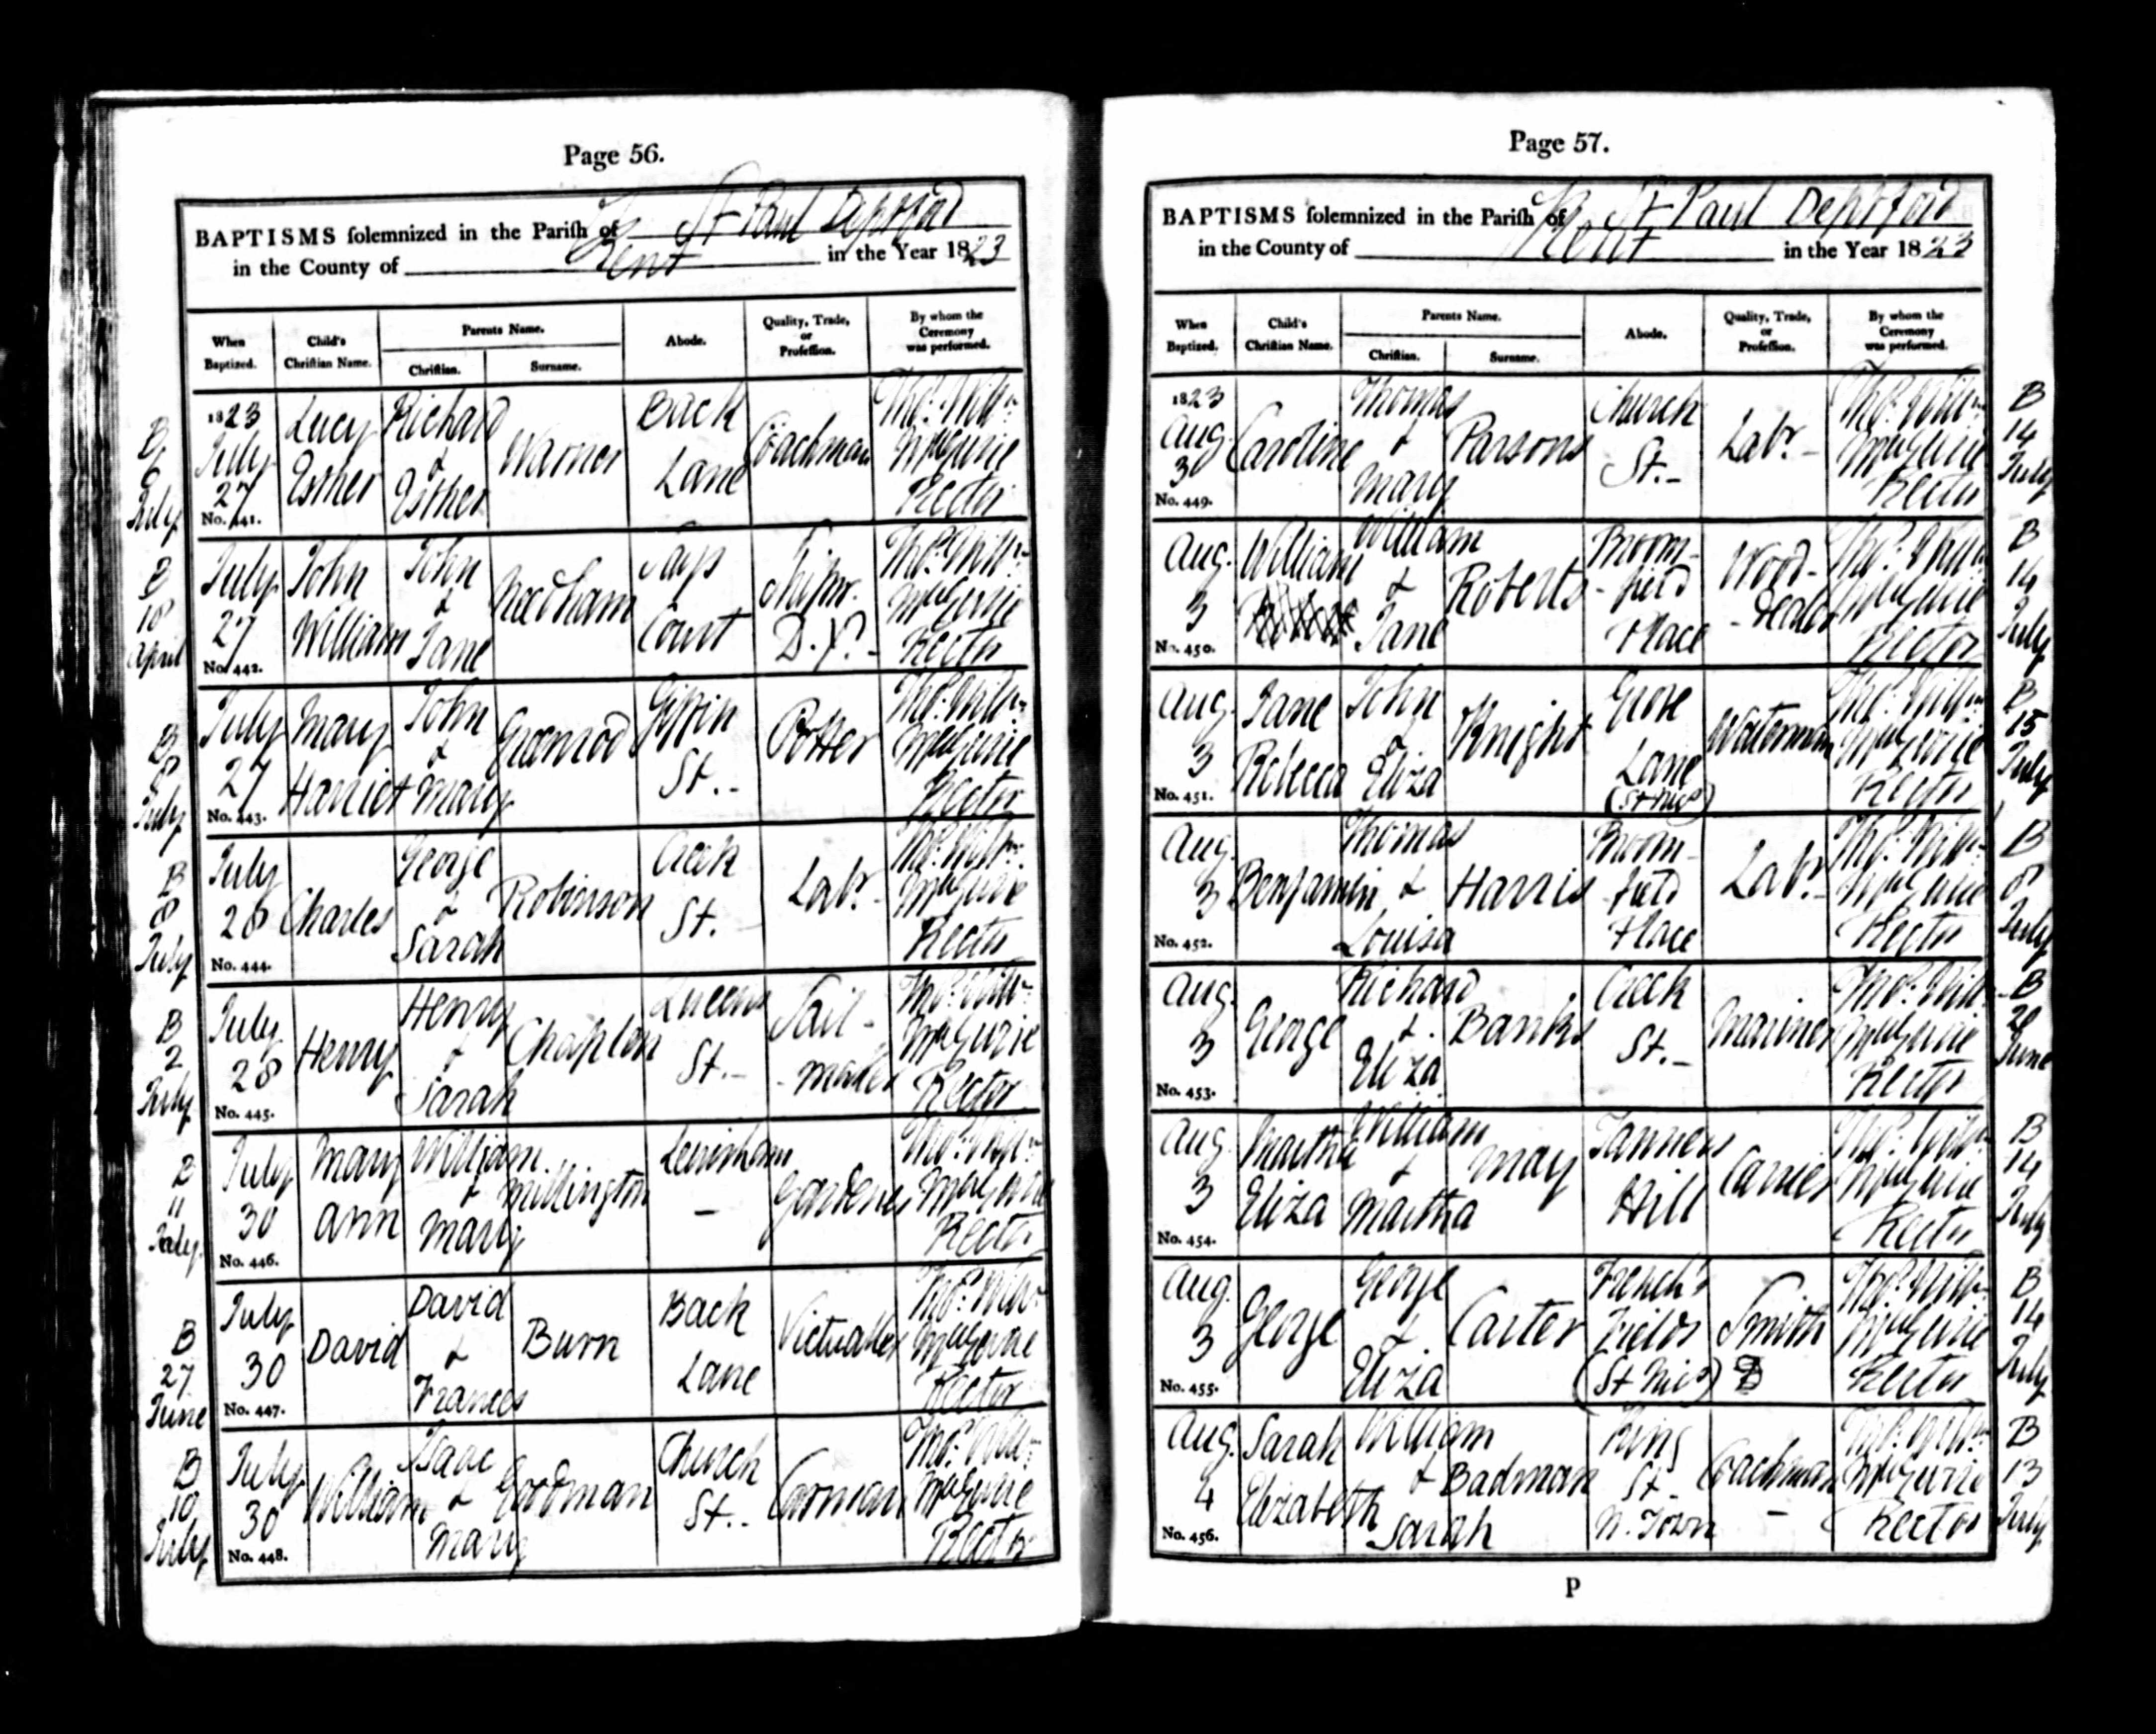 Page 56.
BAPTISMS solemnized in the Parish of St Paul Deptford
in the County of Kent in the Year 1823
When Baptized. Child's Christian Name. Parents Name. Christian. Surname. Abode. Quality, Trade, or Profession. By whom the Ceremony was performed.
B
6
July
1823
July
27
No. 441.
Lucy
Esther
Richard
&
Esther
Warner
Back
Lane
Coachman
Rector
B
18
April
July
27
No. 442.
John
William
John
&
Jane
Needham
Says
Court
Shipwr.
D.Y.
Rector
B
8
July
July
27
No. 443.
Mary
Harriet
John
&
Mary
Greenrod
Giffin
St.
Potter
Rector
B
8
July
July
28
No. 444.
Charles
George
&
Sarah
Robinson
Creek
St.
Labr.
Rector
B
2
July
July
28
No. 445.
Henry
Henry
&
Sarah
Chaplon
Queens
St.
Sail-
-maker
Rector
B
11
July
July
30
No. 446.
Mary
Ann
William
&
Mary
Millington
Lewisham
-
Gardener
Rector
B
27
June
July
30
No. 447.
David
David
&
Frances
Burn
Back
Lane
Victualler
Rector
B
10
July
July
30
No. 448.
William
Isaac
&
Mary
Goodman
Church
St.
Carman
Rector
Page 57.
BAPTISMS solemnized in the Parish of St Paul Deptford
in the County of Kent in the Year 1823
When Baptized. Child's Christian Name. Parents Name. Christian. Surname. Abode. Quality, Trade, or Profession. By whom the Ceremony was performed.
1823
Aug
30
No. 449.
Caroline
Thomas
&
Mary
Parsons
Church
St.
Labr.
Rector
B
14
July
Aug.
3
No. 450.
William
William
&
Jane
Roberts
Broom-
-field
Place
Wood-
-dealer
Rector
B
14
July
Aug.
3
No. 451.
Jane
Rebecca
John
&
Eliza
Knight
Grove
Lane
(St Nics)
Waterman
Rector
B
15
July
Aug.
3
No. 452.
Benjamin
Thomas
&
Louisa
Harris
Broom-
field
Place
Labr.
Rector
B
8
July
Aug.
3
No. 453.
George
Richard
&
Eliza
Banks
Creek
St.
Mariner
Rector
B
20
June
Aug.
3
No. 454.
Martha
Eliza
William
&
Martha
May
Tanners
Hill
Carrier
Rector
B
14
July
Aug.
3
No. 455.
George
George
&
Eliza
Carter
French's
Fields
(St Nics)
Smith
Rector
B
14
July
Aug.
4
No. 456.
Sarah
Elizabeth
William
&
Sarah
Badman
King
St.
N. Town
Coachman
-
Rector
B
13
July
P